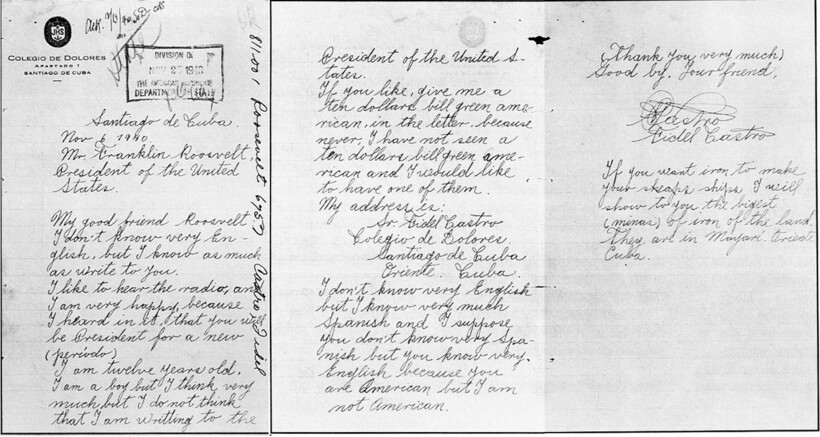 JHS
COLEGIO DE DOLORES
APARTADO 1
SANTIAGO DE CUBA
DIVISION OF
NOV 27 1940
THE AMERICAN REPUBLICS
DEPARTMENT OF STATE
811.001 Roosevelt 6757
Castro, Fidel
Santiago de Cuba.
Nov 6 1940.
Mr. Franklin Roosvelt,
President of the United
States.
My good friend Roosvelt
I don't know very En-
glish, but I know as much
as write to you.
I like to hear the radio, and
I am very happy, because
I heard in it, that you will
be President for a new
(periodo)
I am twelve years old.
I am a boy but I think very
much but I do not think
that I am writting to the
President of the United S-
tates.
If you like, give me a
ten dollars bill green ame-
rican, in the letter, because
never, I have not seen a
ten dollars bill green ame-
rican and I would like
to have one of them.
My address is:
Sr. Fidel Castro
Colegio de Dolores
Santiago de Cuba
Oriente. Cuba.
I don't know very English
but I know very much
Spanish and I suppose
you don't know very Spa-
nish but you know very
English because you
are American but I am
not American.
(Thank you very much)
Good by. Your friend,
Castro
Fidel Castro
If you want iron to make
your sheaps ships I will
show to you the bigest
(minas) of iron of the land.
They are in Mayari. Oriente
Cuba.